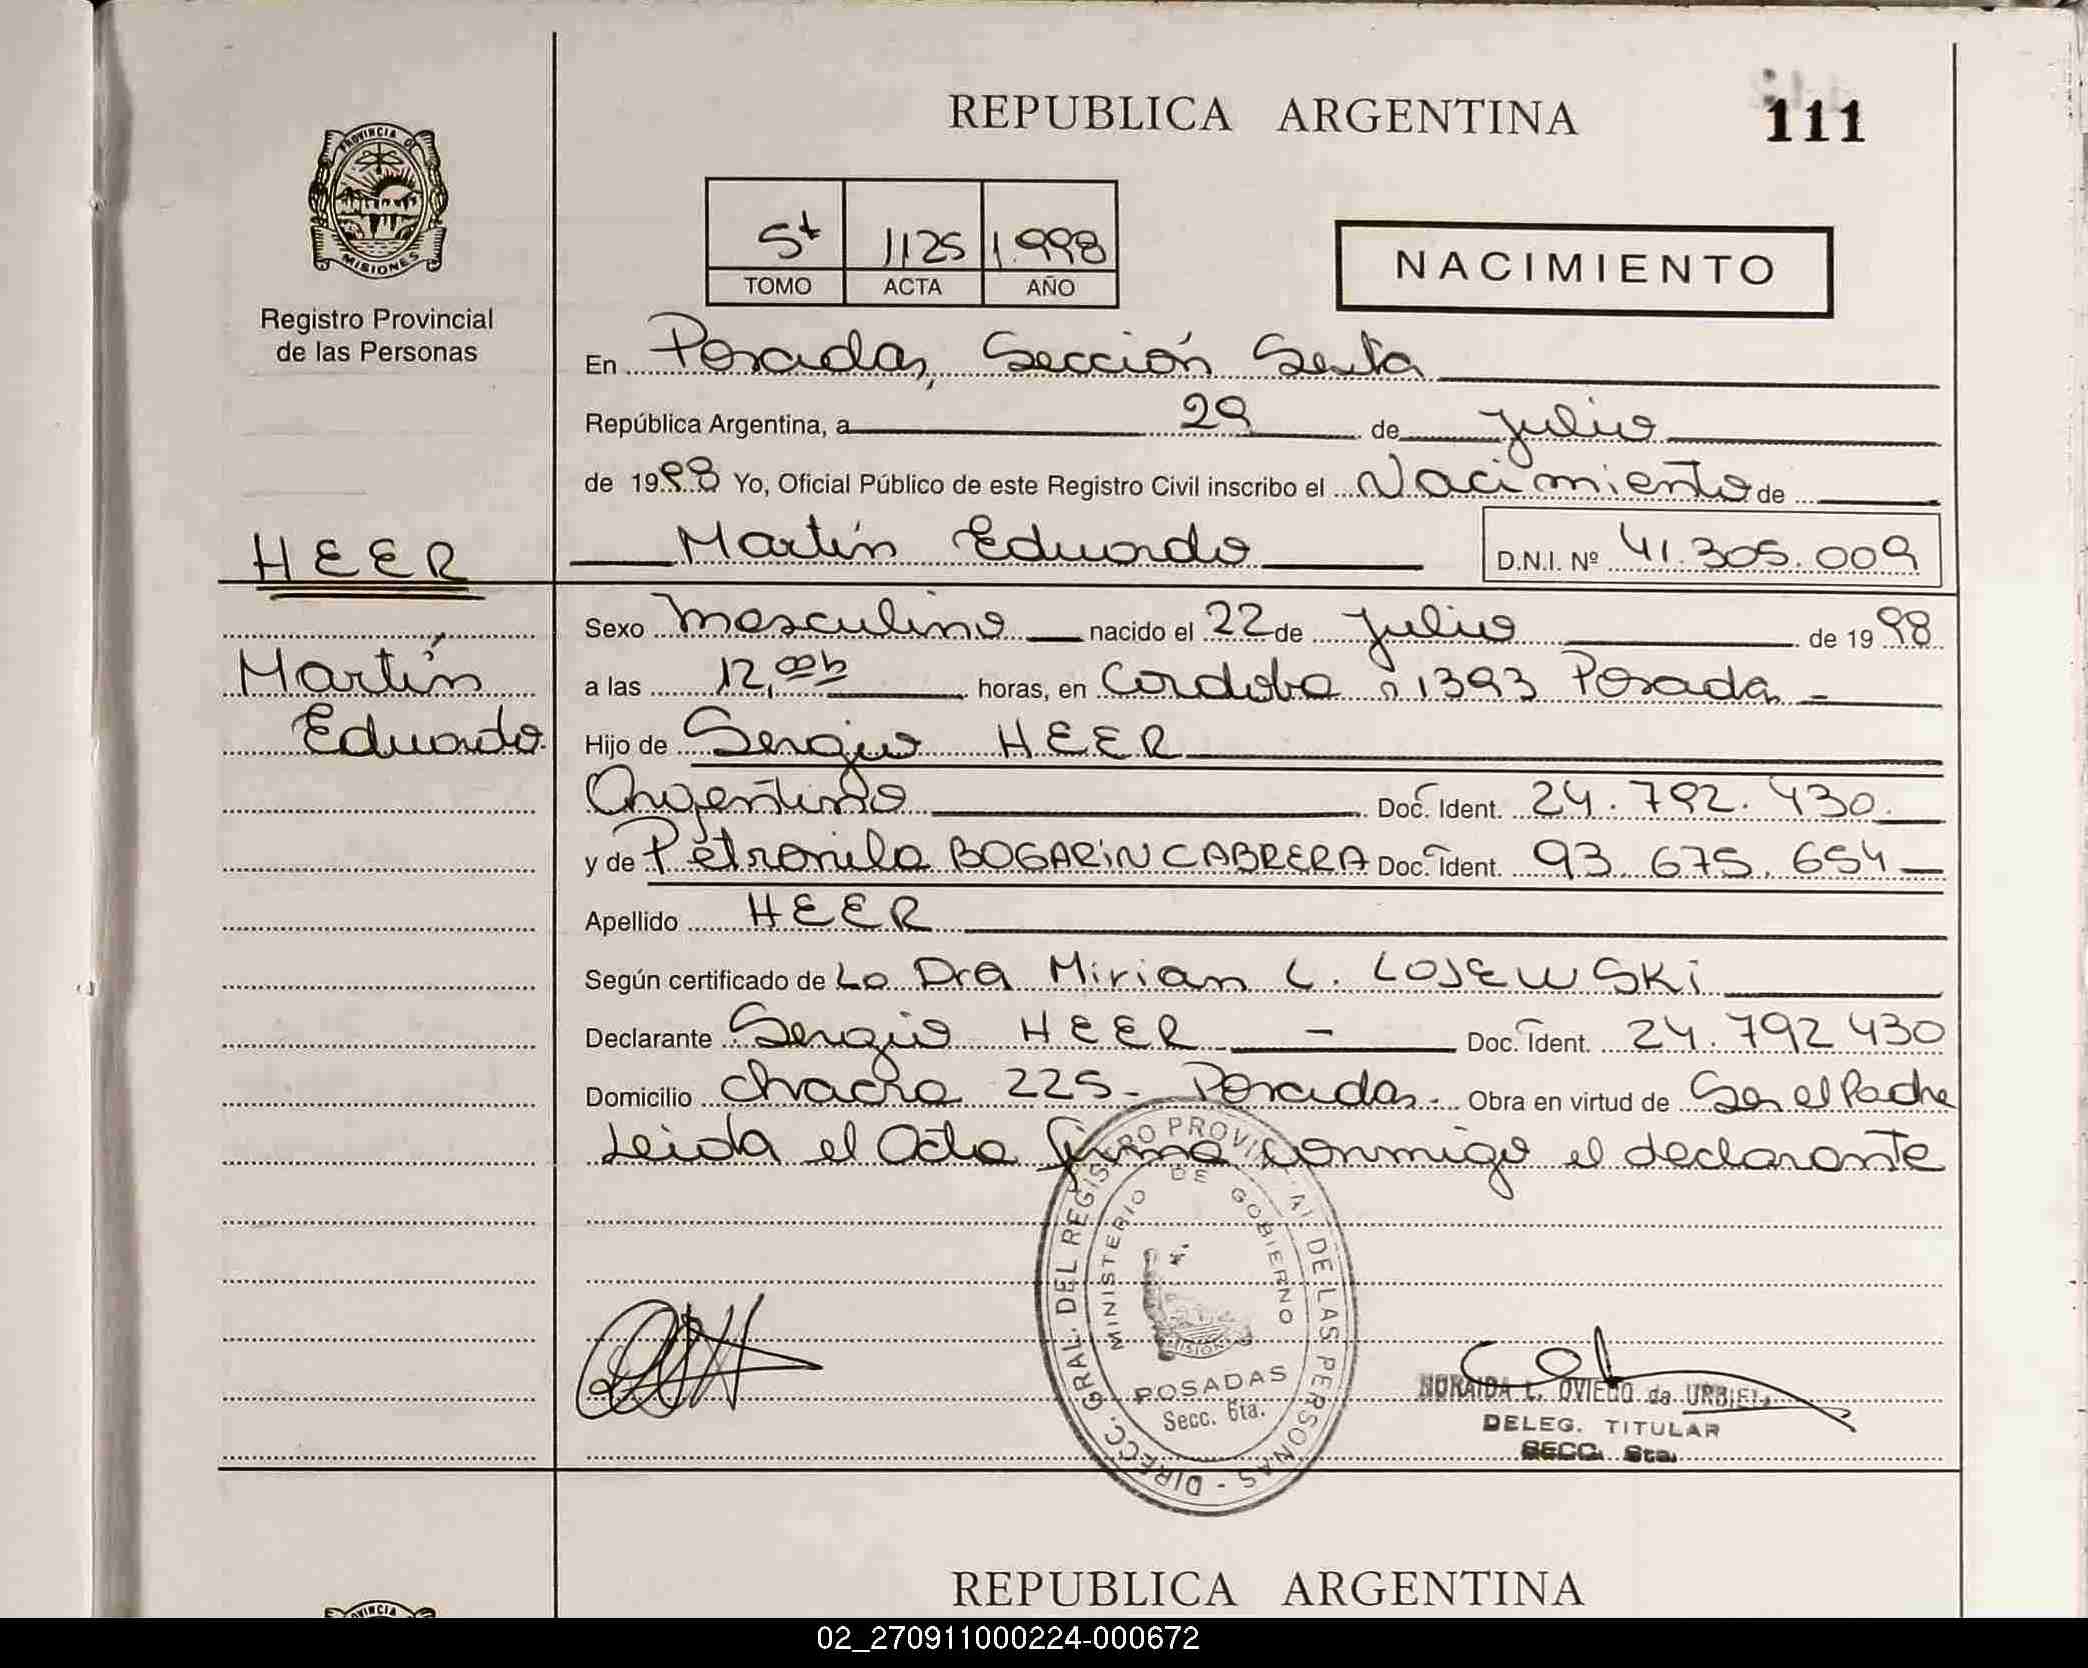 REPUBLICA ARGENTINA
111
PROVINCIA DE
MISIONES
Registro Provincial
de las Personas
5t 1125 1.998
TOMO ACTA AÑO
NACIMIENTO
En Posadas, Sección Sexta
República Argentina, a 29 de julio
de 1998 Yo, Oficial Público de este Registro Civil inscribo el Nacimiento de
HEER
Martín Eduardo D.N.I. Nº 41.305.009
Martín
Eduardo
Sexo masculino nacido el 22 de julio de 1998
a las 12,00h horas, en Cordoba n 1393 Posadas
Hijo de Sergio HEER
Argentino Doc. Ident. 24.792.430
y de Petronila BOGARIN CABRERA Doc. Ident. 93.675.654
Apellido HEER
Según certificado de La Dra Mirian L. LOJEWSKi
Declarante Sergio HEER - Doc. Ident. 24.792430
Domicilio chacra 225- Posadas.- Obra en virtud de Ser el Padre
Leida el Acta firma conmigo el declarante
DIRECC. GRAL. DEL REGISTRO PROVINCIAL DE LAS PERSONAS -
MINISTERIO DE GOBIERNO
MISIONES
POSADAS
Secc. 6ta.
NORAIDA L. OVIEDO de URBIEL
DELEG. TITULAR
SECC. 6ta.
REPUBLICA ARGENTINA
PROVINCIA
02_270911000224-000672